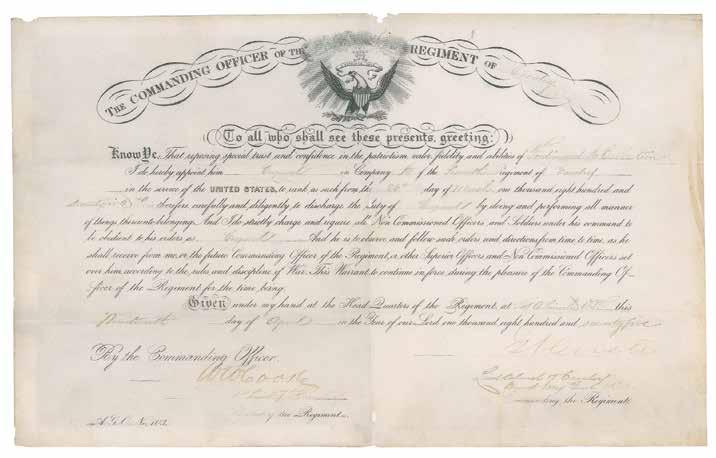 THE COMMANDING OFFICER OF THE REGIMENT OF Cavalry
To all who shall see these presents, greeting:
Know Ye: That reposing special trust and confidence in the patriotism, valor, fidelity, and abilities of
I do hereby appoint him Corporal in Company of the Seventh Regiment of Cavalry
in the service of the UNITED STATES, to rank as such from the day of March one thousand eight hundred and
seventy five He is therefore carefully and diligently to discharge the duty of Corporal by doing and performing all manner
of things thereunto belonging. And I do strictly charge and require all Non Commissioned Officers and Soldiers under his command to
be obedient to his orders as Corporal And he is to observe and follow such orders and directions from time to time, as he
shall receive from me, or the future Commanding Officer of the Regiment, or other Superior Officers and Non Commissioned Officers set
over him, according to the rules and discipline of War. This Warrant to continue in force during the pleasure of the Commanding Of-
ficer of the Regiment for the time being.
Given under my hand at the Head Quarters of the Regiment, at this
Nineteenth day of April in the Year of our Lord one thousand eight hundred and seventy five
By the Commanding Officer.
W W Cooke
1st Lieut 7th Cavalry
of the Regiment.
Lieut Colonel 7th Cavalry
Commanding the Regiment.
A.G.O. No. 103.